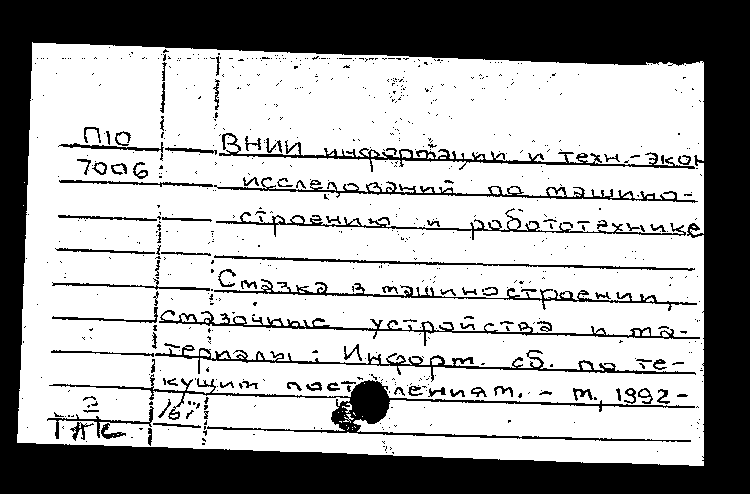 П10
7006
ВНИИ информации и техн.-экон
исследований по машино-
строению и робототехнике
Смазка в машиностроении,
смазочные устройства и ма-
териалы: Информ. сб. по те-
кущим пост лениям. - М., 1992-
2